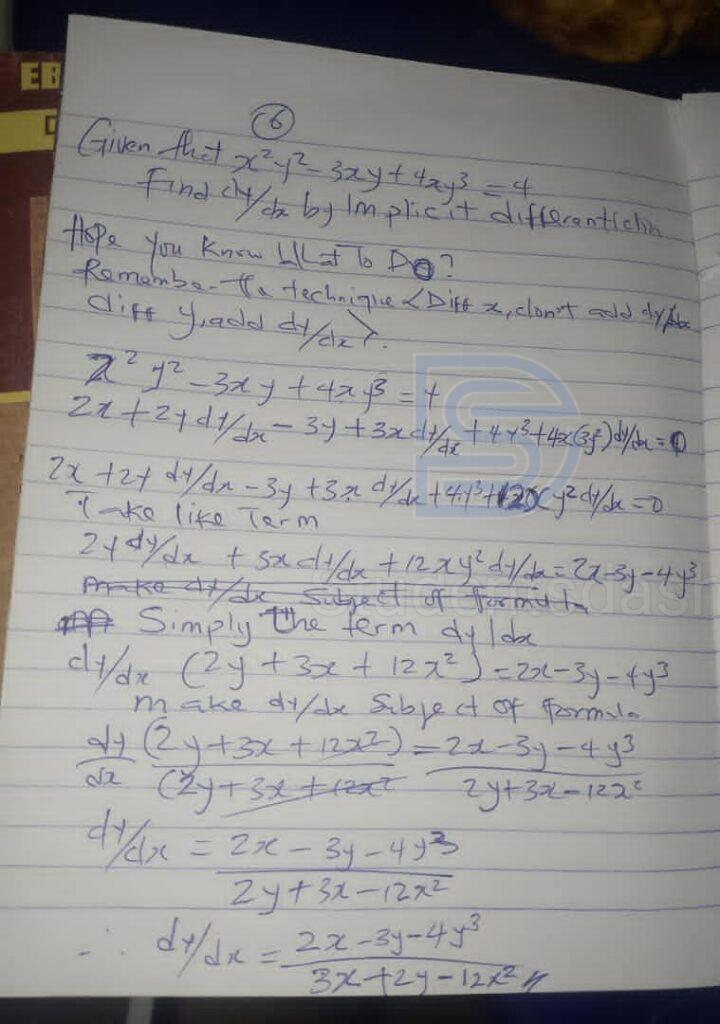 EB
D
(6)
Given that x²y² - 3xy + 4xy³ = 4
Find dy/dx by Implicit differentiation
Hope You Know What To Do?
Remember the technique <Diff x, don't add dy/dx
diff y, add dy/dx>.
x² y² - 3xy + 4xy³ = 4
2x + 2y dy/dx - 3y + 3x dy/dx + 4y³ + 4x(3y²) dy/dx = 0
2x + 2y dy/dx - 3y + 3x dy/dx + 4y³ + 12x y² dy/dx = 0
Take like Term
2y dy/dx + 3x dy/dx + 12xy² dy/dx = 2x - 3y - 4y³
make dy/dx Subject of formula
Simply the term dy/dx
dy/dx (2y + 3x + 12x²) = 2x - 3y - 4y³
make dy/dx Subject of formula
dy/dx (2y + 3x + 12x²)/(2y + 3x + 12x² = 2x - 3y - 4y³/2y + 3x - 12x²
dy/dx = 2x - 3y - 4y³/2y + 3x - 12x²
∴ dy/dx = 2x - 3y - 4y³/3x + 2y - 12x²